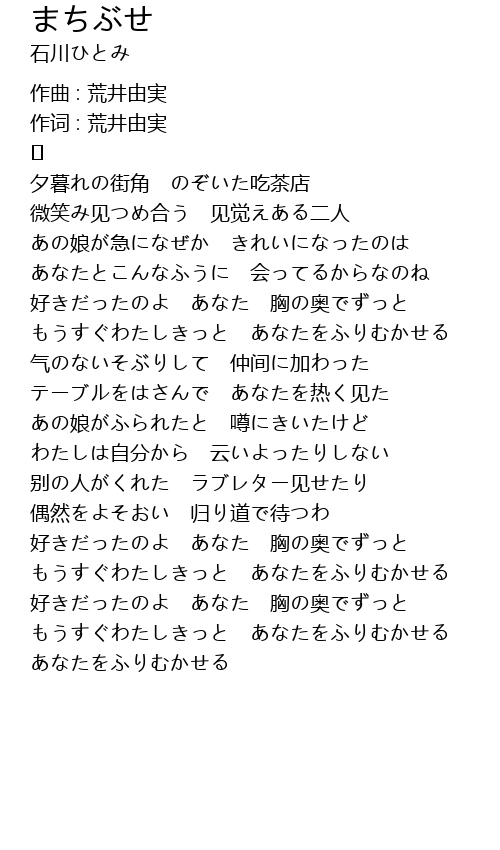 まちぶせ
石川ひとみ
作曲 : 荒井由実
作词 : 荒井由実
夕暮れの街角　のぞいた吃茶店
微笑み见つめ合う　见觉えある二人
あの娘が急になぜか　きれいになったのは
あなたとこんなふうに　会ってるからなのね
好きだったのよ　あなた　胸の奥でずっと
もうすぐわたしきっと　あなたをふりむかせる
气のないそぶりして　仲间に加わった
テーブルをはさんで　あなたを热く见た
あの娘がふられたと　噂にきいたけど
わたしは自分から　云いよったりしない
别の人がくれた　ラブレター见せたり
偶然をよそおい　归り道で待つわ
好きだったのよ　あなた　胸の奥でずっと
もうすぐわたしきっと　あなたをふりむかせる
好きだったのよ　あなた　胸の奥でずっと
もうすぐわたしきっと　あなたをふりむかせる
あなたをふりむかせる